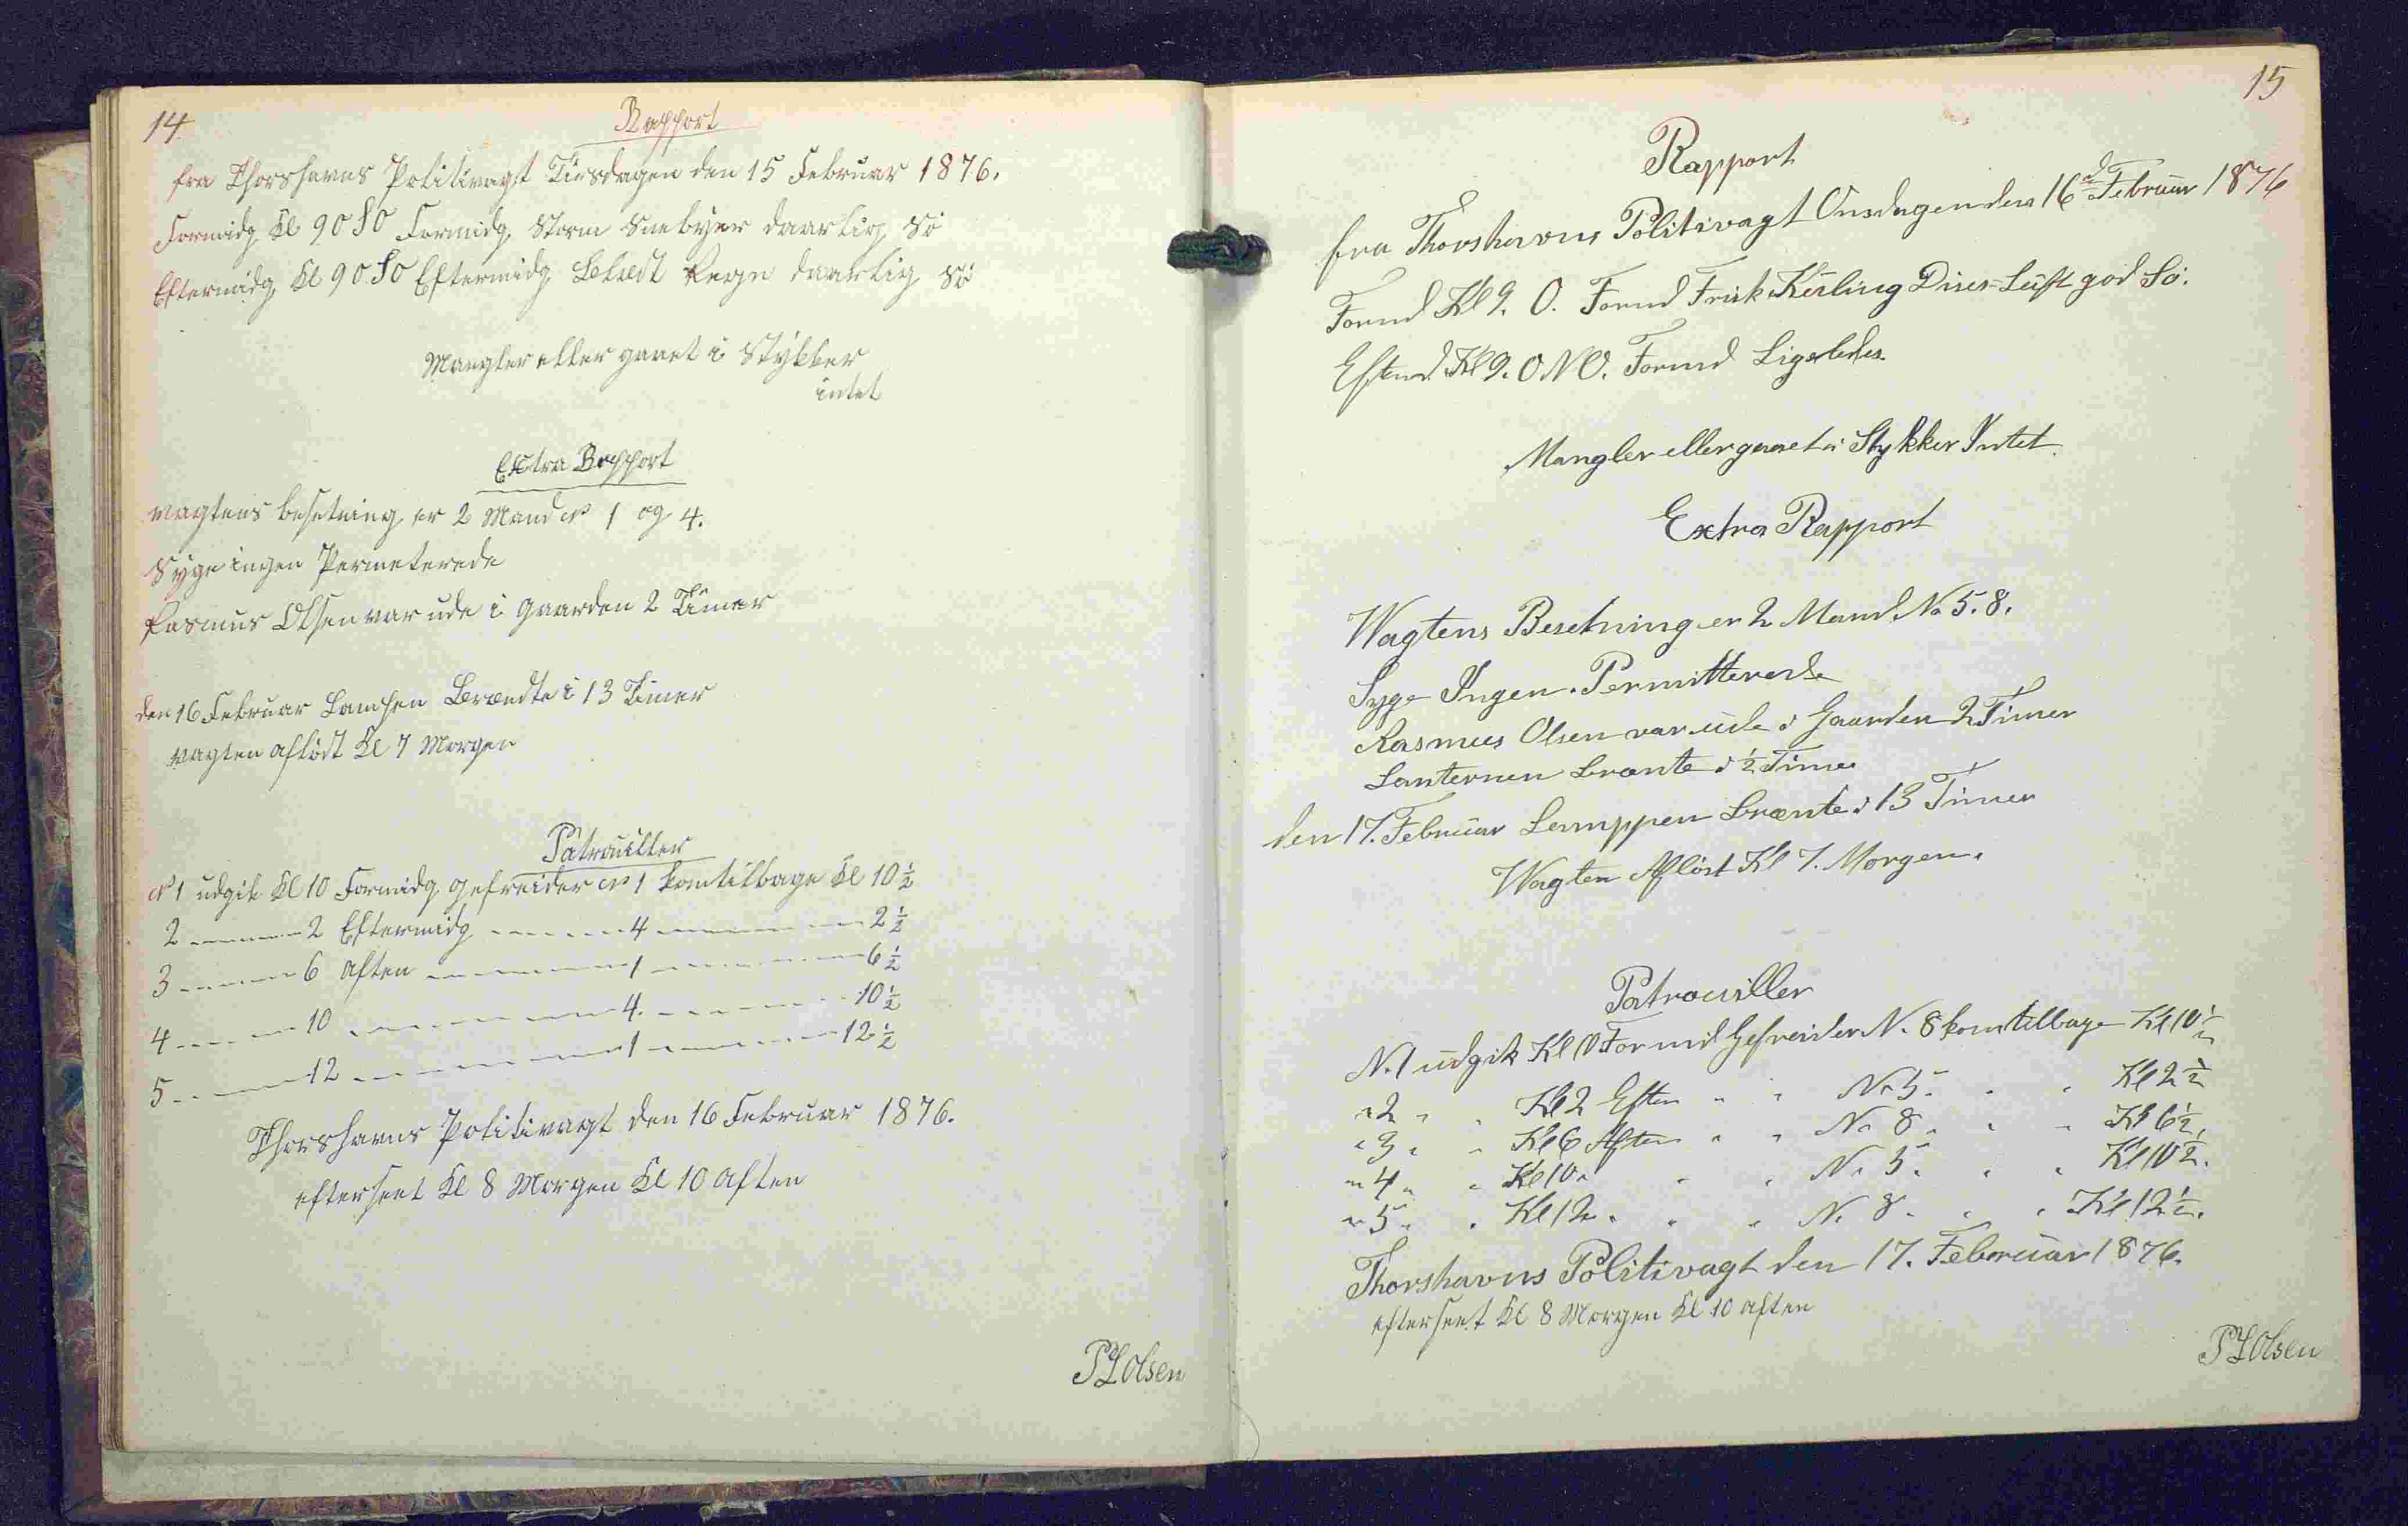 14
Rapport
fra Thorshavns Politivagt Tirsdagen den 15 Februar 1876.
Formidg Kl 9 O S O Formidg Storm Snebyer daarlig Sö
Eftermidg Kl 9 O S O Eftermidg Regn daarlig Sö
Mangler eller gaaet i Stykker
intet
Extra Rapport
Vagtens besetning er 2 Mand No 1 og 4.
Syge ingen Permeterede
Rasmus Olsen var ude i gaarden 2 Timer
den 16 Februar Lampen Brændte i 13 Timer
vagten aflöst Kl 7 Morgen
Patrouiller
No 1 udgik Kl 10 Formidg gefreider No 1 kom tilbage Kl 10 ½
2 2 Eftermidg 4 2 ½
3 6 Aften 1 6 ½
4 10 4. 10 ½
5 12 1 12 ½
Thorshavns Politivagt den 16 Februar 1876.
efterseet Kl 8 Morgen Kl 10 Aften
P L Olsen
15
Rapport
fra Thorshavns Politivagt Onsdagen den 16d Februar 1876
Formd Kl 9. O. Formd Frisk Kuling Dises-Luft god Sö.
Eftmd. Kl 9. O N O. Formd Ligeledes.
Mangler eller gaaet i Stykker Intet.
Extra Rapport
Wagtens Besetning er 2 Mand No 5. 8.
Syge Ingen. Permitterede
Rasmus Olsen var ude i Gaarden 2 Timer
Lanternen brænte i ½ Time
den 17. Februar Lamppen brænte i 13 Timer
Wagten Aflöst Kl 7. Morgen.
Patrouiller
N. 1 udgik Kl 10 Formid Gefreider N. 8 kom tilbage Kl 10 ½
" 2 " " Kl 2 Eftm " " No 5. " " Kl 2 ½
" 3 " " Kl 6 Aften " " No 8. " " Kl 6 ½.
" 4 " " Kl 10 " " " No 5. " " Kl 10 ½.
" 5 " " Kl 12 " " " No 8. " " Kl 12 ½.
Thorshavns Politivagt den 17. Februar 1876.
efterseet Kl 8 Morgen Kl 10 Aften
P L Olsen